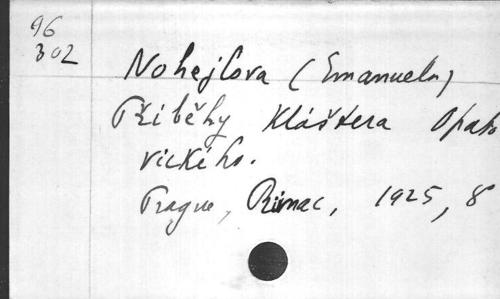 96
302
Nohejlova (Emanuela)
Příběhy Kláštera Opato
vického.
Prague, Rimac, 1925, 8°